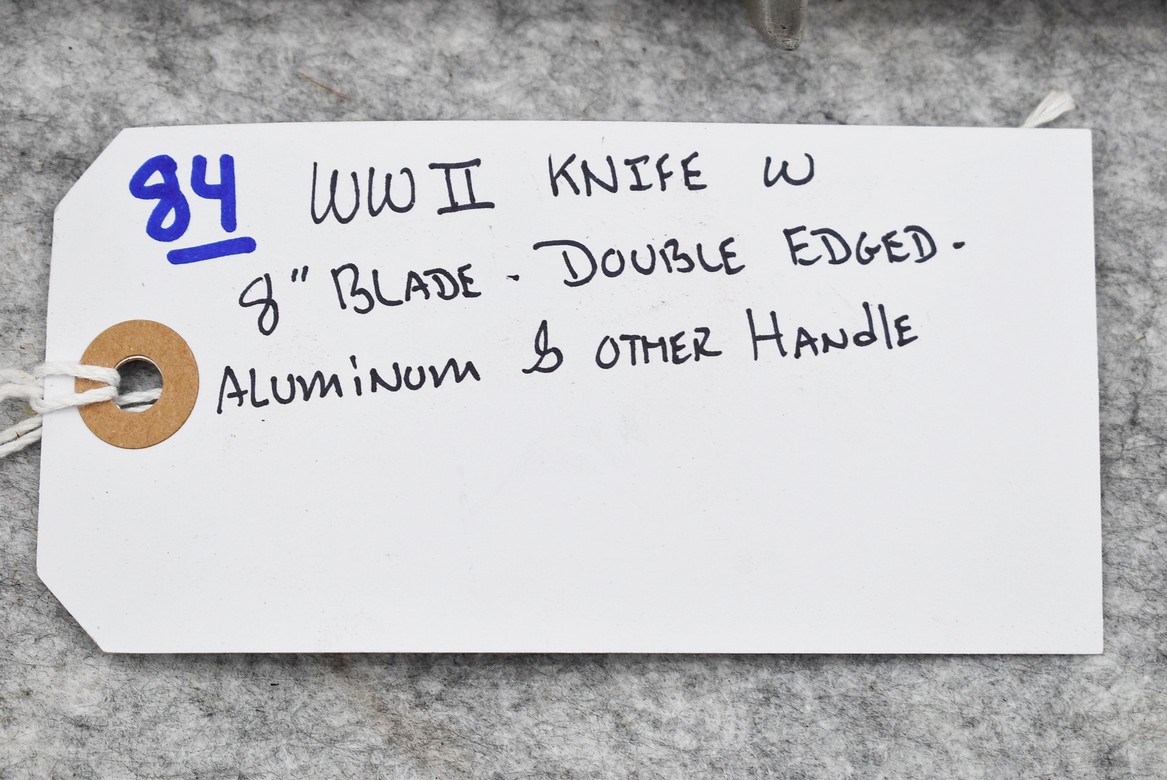 84 WW II KNIFE W
8" BLADE - DOUBLE EDGED -
ALUMINUM & OTHER HANDLE